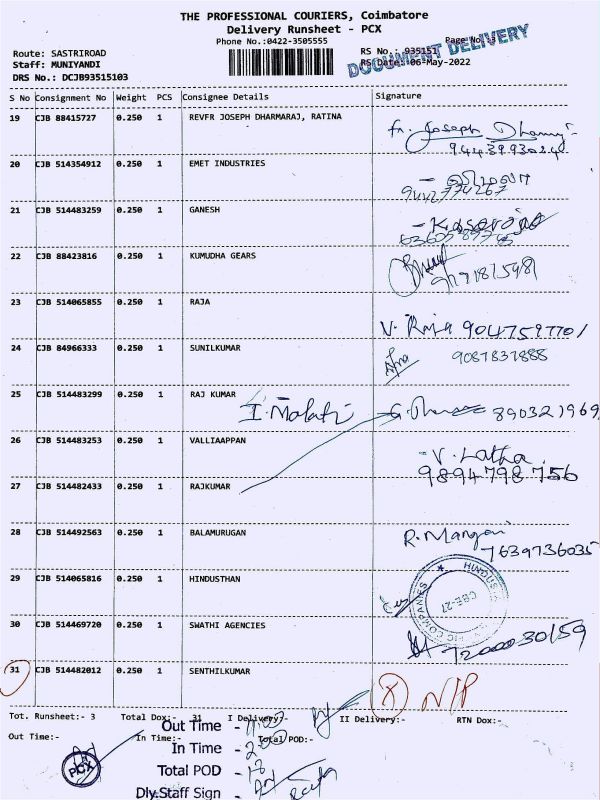 THE PROFESSIONAL COURIERS, Coimbatore
Delivery Runsheet - PCX
Phone No.:0422-3505555
Page No.:3
Route: SASTRIROAD
RS No.: 935151
DOCUMENT DELIVERY
Staff: MUNIYANDI
RS Date: 06-May-2022
DRS No.: DCJB93515103
S No Consignment No Weight PCS Consignee Details Signature
19 CJB 88415727 0.250 1 REVFR JOSEPH DHARMARAJ, RATINA
Fr. Joseph
9443993024
20 CJB 514354912 0.250 1 EMET INDUSTRIES
9442774267
21 CJB 514483259 0.250 1 GANESH
22 CJB 88423816 0.250 1 KUMUDHA GEARS
23 CJB 514065855 0.250 1 RAJA
V. Raja 9047597701
24 CJB 84966333 0.250 1 SUNILKUMAR
9087837888
25 CJB 514483299 0.250 1 RAJ KUMAR
I. Malati
890321969
26 CJB 514483253 0.250 1 VALLIAAPPAN
- V. Latha
9894798756
27 CJB 514482433 0.250 1 RAJKUMAR
28 CJB 514492563 0.250 1 BALAMURUGAN
R. Mangai
7639736035
29 CJB 514065816 0.250 1 HINDUSTHAN
CBE-27
30 CJB 514469720 0.250 1 SWATHI AGENCIES
7200030159
31 CJB 514482012 0.250 1 SENTHILKUMAR
N/P
Tot. Runsheet:- 3 Total Dox:- 31 I Delivery:- II Delivery:- RTN Dox:-
Out Time:- In Time:- Total POD:-
Out Time - 11.00
In Time -
Total POD -
Dly.Staff Sign -
PCX